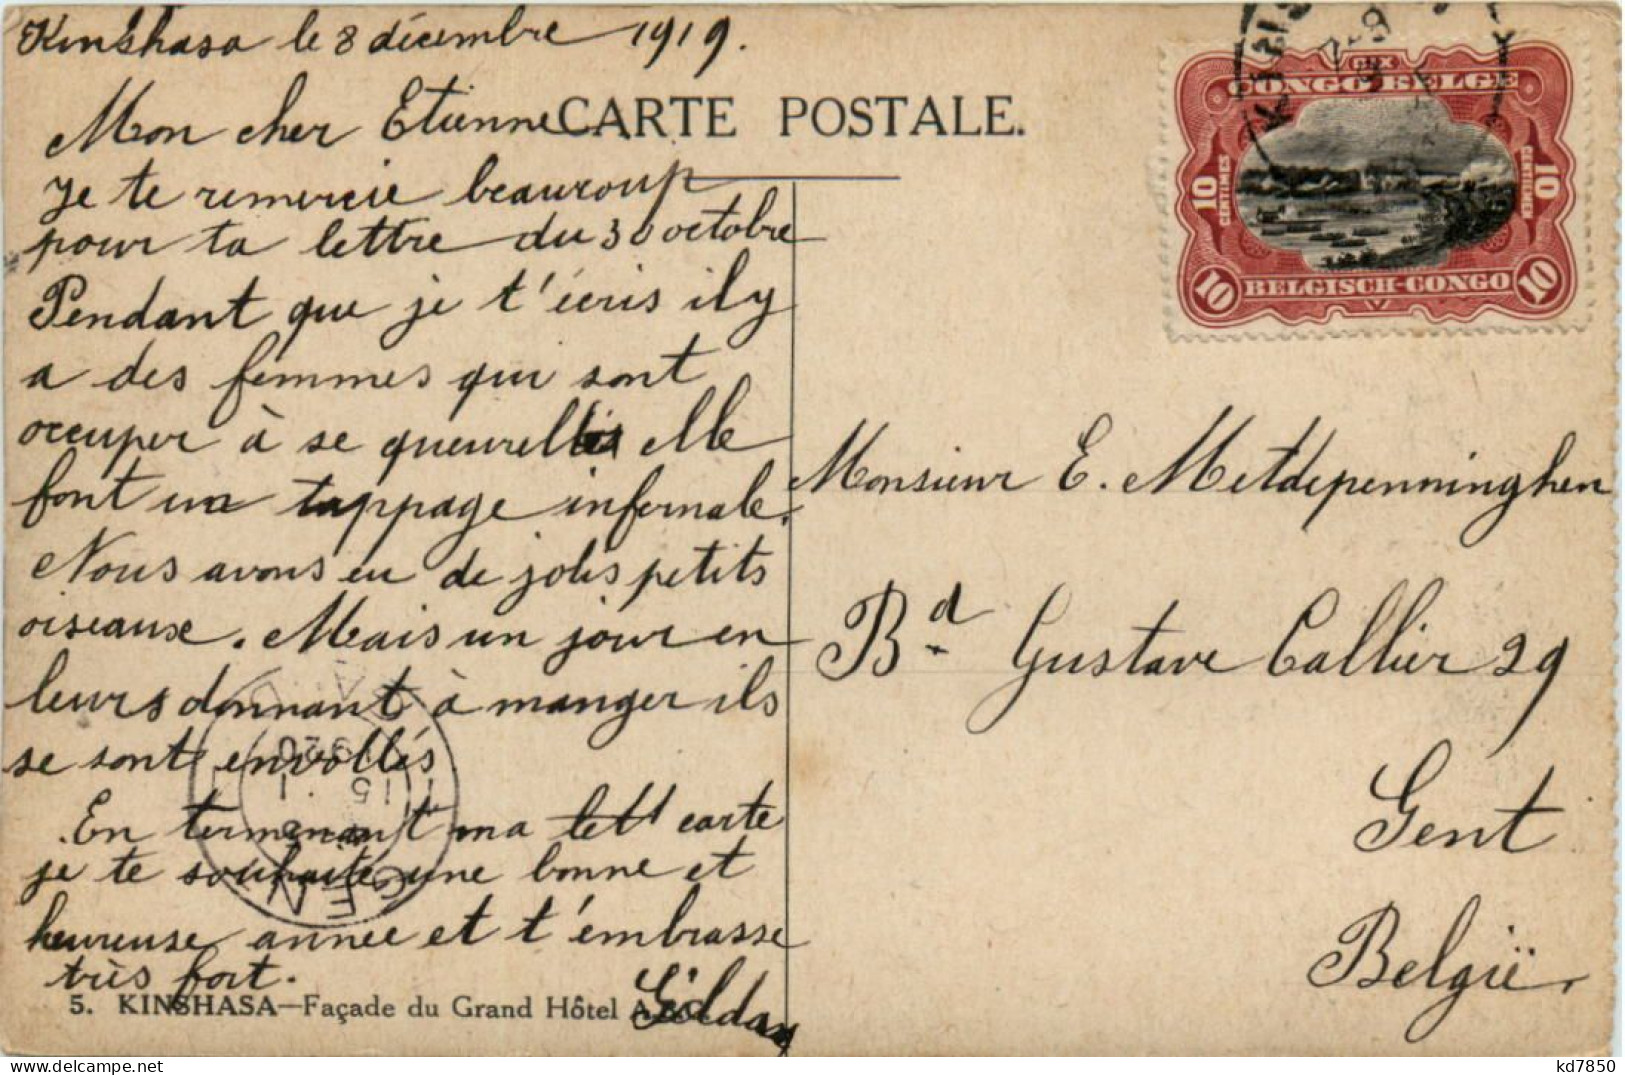 Kinshasa le 8 décembre 1919.
Mon cher Etienne
CARTE POSTALE.
Je te remercie beaucoup
pour ta lettre du 30 octobre
Pendant que je t'écris il y
a des femmes qui sont
occuper à se queurelles elle
font un tappage infernale.
Nous avons eu de jolis petits
oiseause. Mais un jour en
leurs donnant à manger ils
se sont envollés
En terminant ma lett carte
je te souhaite une bonne et
heureuse année et t'embrasse
très fort.
Gilda
5. KINSHASA—Façade du Grand Hôtel A.B.C.
CONGO BELGE
10 CENTIMES
10 CENTIEMEN
10 BELGISCH-CONGO 10
Monsieur E. Metdepenninghen
Bd Gustave Callier 29
Gent
België.
1920
15
GENT
kd7850